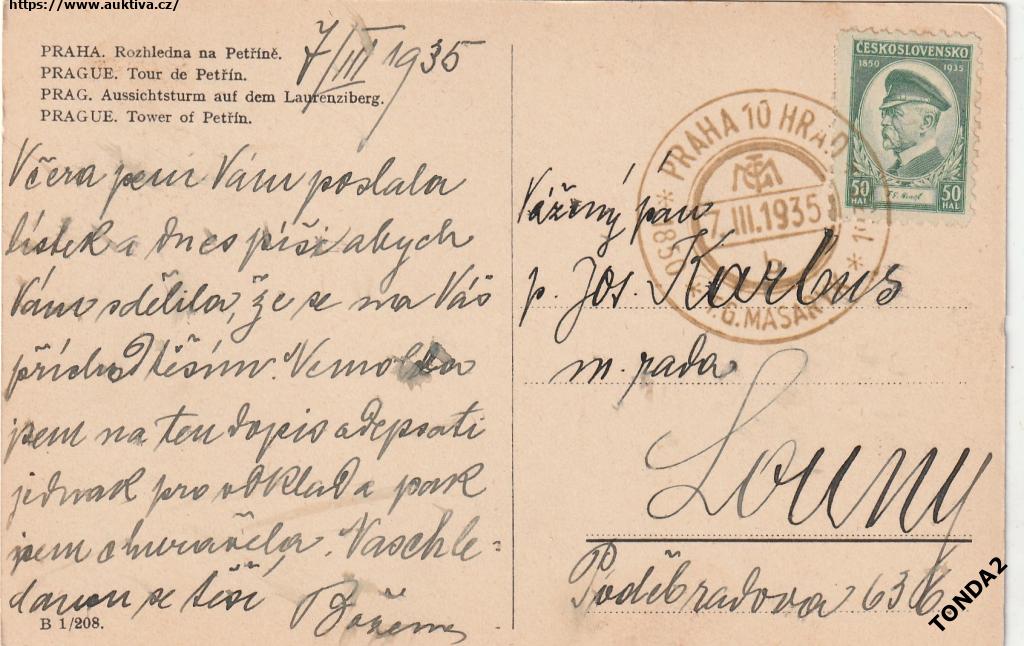 https://www.auktiva.cz/
PRAHA. Rozhledna na Petříně.
PRAGUE. Tour de Petřín.
PRAG. Aussichtsturm auf dem Laurenziberg.
PRAGUE. Tower of Petřín.
7/III 1935
Včera jsem Vám poslala
lístek a dnes píši abych
Vám sdělila, že se na Váš
příchod těším. Nemohla
jsem na ten dopis odepsati
jednak pro odklad a pak
jsem churavěla. Naschle=
danou se těší
Božena
B 1/208.
ČESKOSLOVENSKO
1850 1935
50 HAL 50 HAL
PRAHA 10 HRAD
7.III.1935
b
* 1850 * T.G. MASARYK *
Vážený pan
p. Jos. Karbus
m. rada
Louny
Poděbradova 636.
TONDA2